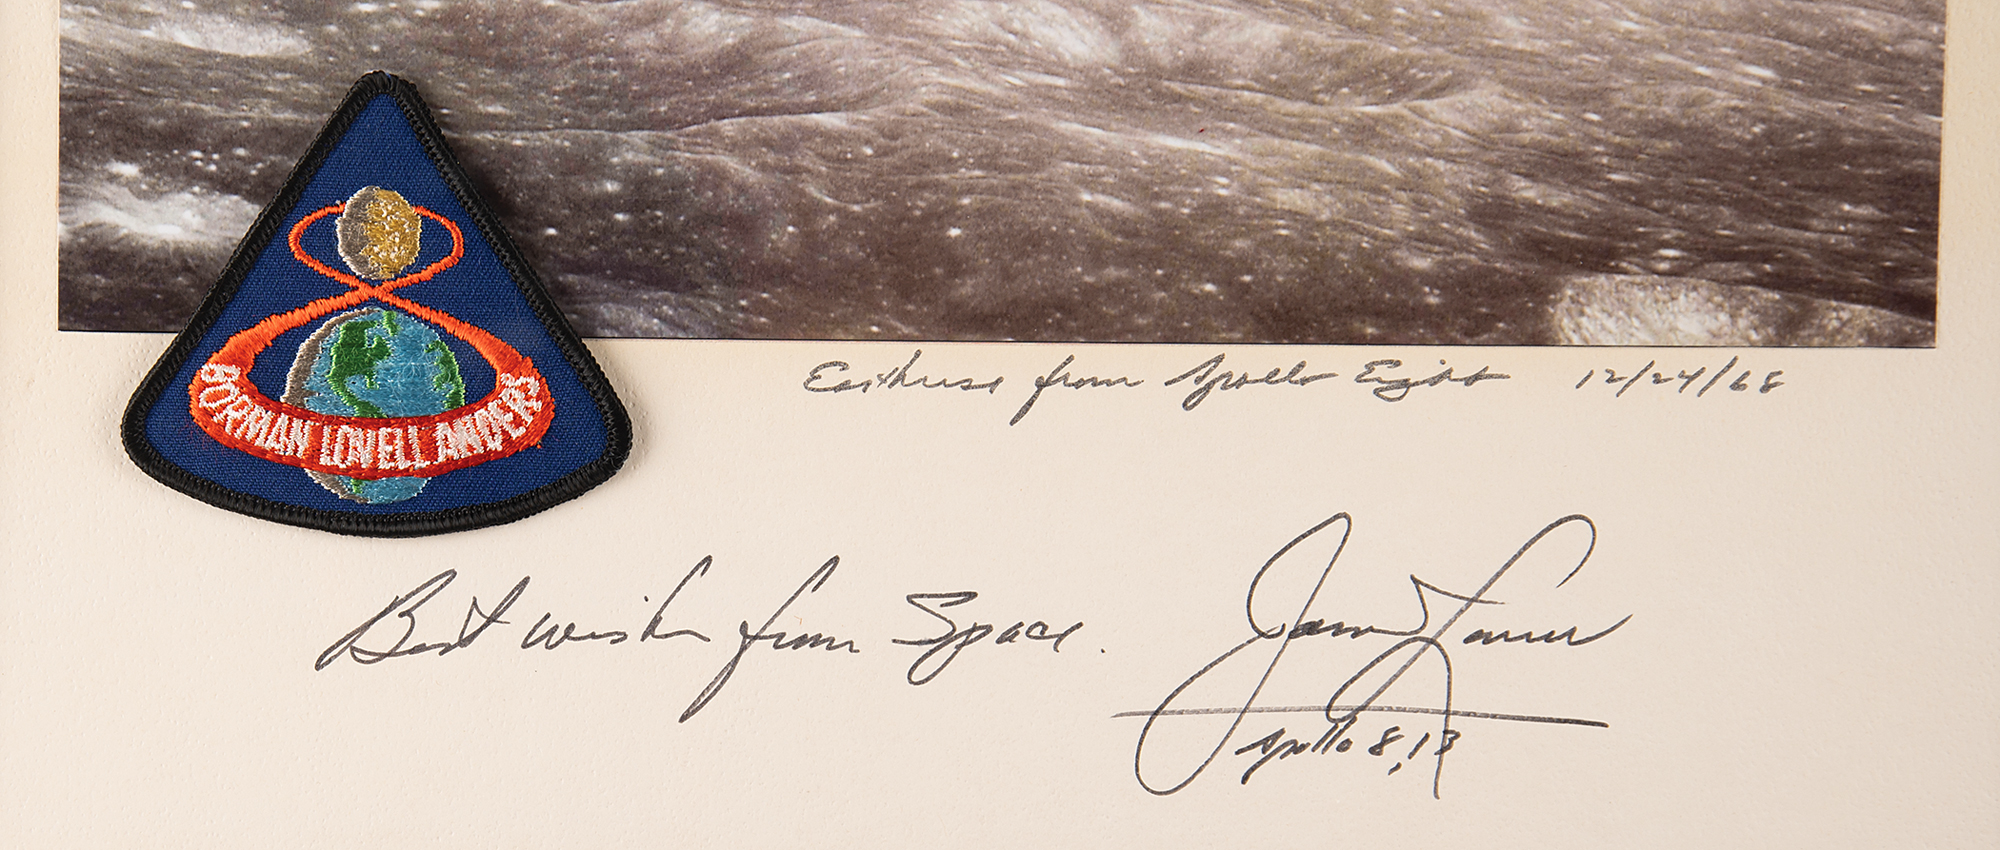 BORMAN LOVELL ANDERS
Earthrise from Apollo Eight 12/24/68
Best wishes from Space. James Lovell
Apollo 8, 13